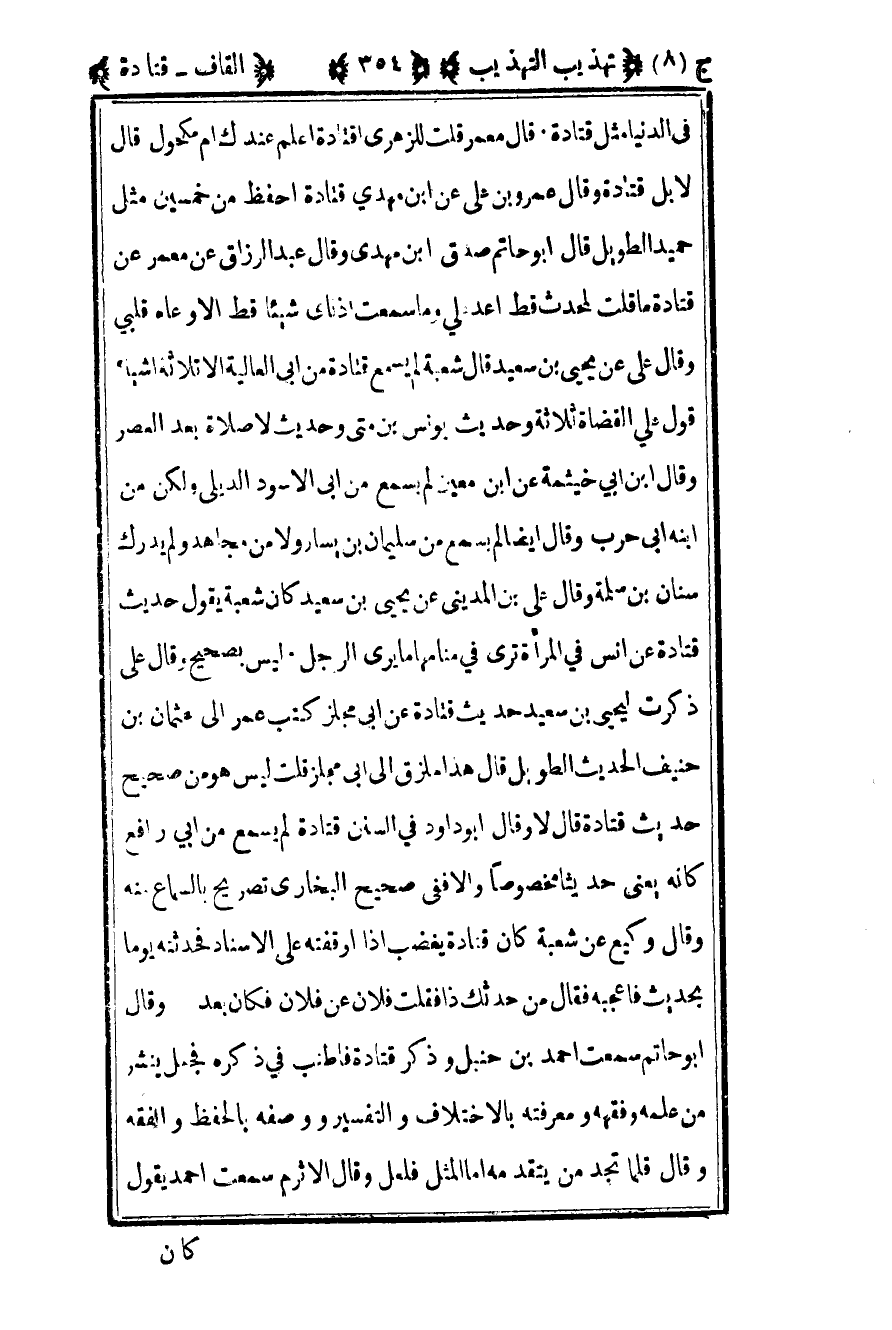 ج (٨) ﴿ تهذيب التهذيب ﴾ ﴿ ٣٥٤ ﴾ ﴿ القاف ـ قتادة ﴾
فى الدنيا مثل قتادة ٠ قال معمر قلت للزهرى اقتادة اعلم عندك ام مكحول قال
لا بل قتادة وقال عمرو بن على عن ابن مهدي قتادة احفظ من خمسين مثل
حميد الطويل قال ابو حاتم صدق ابن مهدى وقال عبد الرزاق عن معمر عن
قتادة ما قلت لمحدث قط اعد علي وما سمعت اذناى شيئا قط الا وعاه قلبي
وقال على عن يحيى بن سعيد قال شعبة لم يسمع قتادة من ابى العالية الا ثلاثة اشياء
قول علي القضاة ثلاثة وحديث يونس بن متى وحديث لا صلاة بعد العصر
وقال ابن ابي خيثمة عن ابن معين لم يسمع من ابى الاسود الديلى ولكن من
ابنه ابى حرب وقال ايضا لم يسمع من سليمان بن يسار ولا من مجاهد ولم يدرك
سنان بن سلمة وقال على بن المدينى عن يحيى بن سعيد كان شعبة يقول حديث
قتادة عن انس في المرأة ترى في منامها ما يرى الرجل ٠ ليس بصحيح وقال على
ذكرت ليحيى بن سعيد حديث قتادة عن ابى مجلز كتب عمر الى عثمان بن
حنيف الحديث الطويل قال هذا ملزق الى ابى مجلز قلت ليس هو من صحيح
حديث قتادة قال لا وقال ابو داود في السنن قتادة لم يسمع من ابي رافع
كانه يعنى حديثا مخصوصاً والا ففى صحيح البخارى تصريح بالسماع منه
وقال وكيع عن شعبة كان قتادة يغضب اذا اوقفته على الاسناد فحدثته يوما
بحديث فاعجبه فقال من حدثك ذا فقلت فلان عن فلان فكان بعد وقال
ابو حاتم سمعت احمد بن حنبل وذكر قتادة فاطنب في ذكره فجعل ينشر
من علمه وفقهه ومعرفته بالاختلاف و التفسير و وصفه بالحفظ و الفقه
وقال قلما تجد من يتقدمه اما المثل فلعل وقال الاثرم سمعت احمد يقول
كان